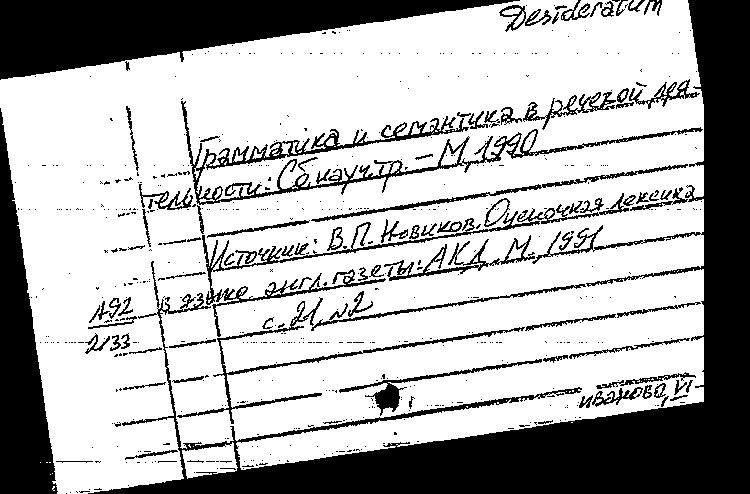 Desideratum
Грамматика и семантика в речевой дея-
тельности: Сб. науч. тр. – М, 1990
Источник: В.П. Новиков. Оценочная лексика
в языке англ. газеты: АКД. М., 1991
с. 21, №2
А92
2133
иванова, VI